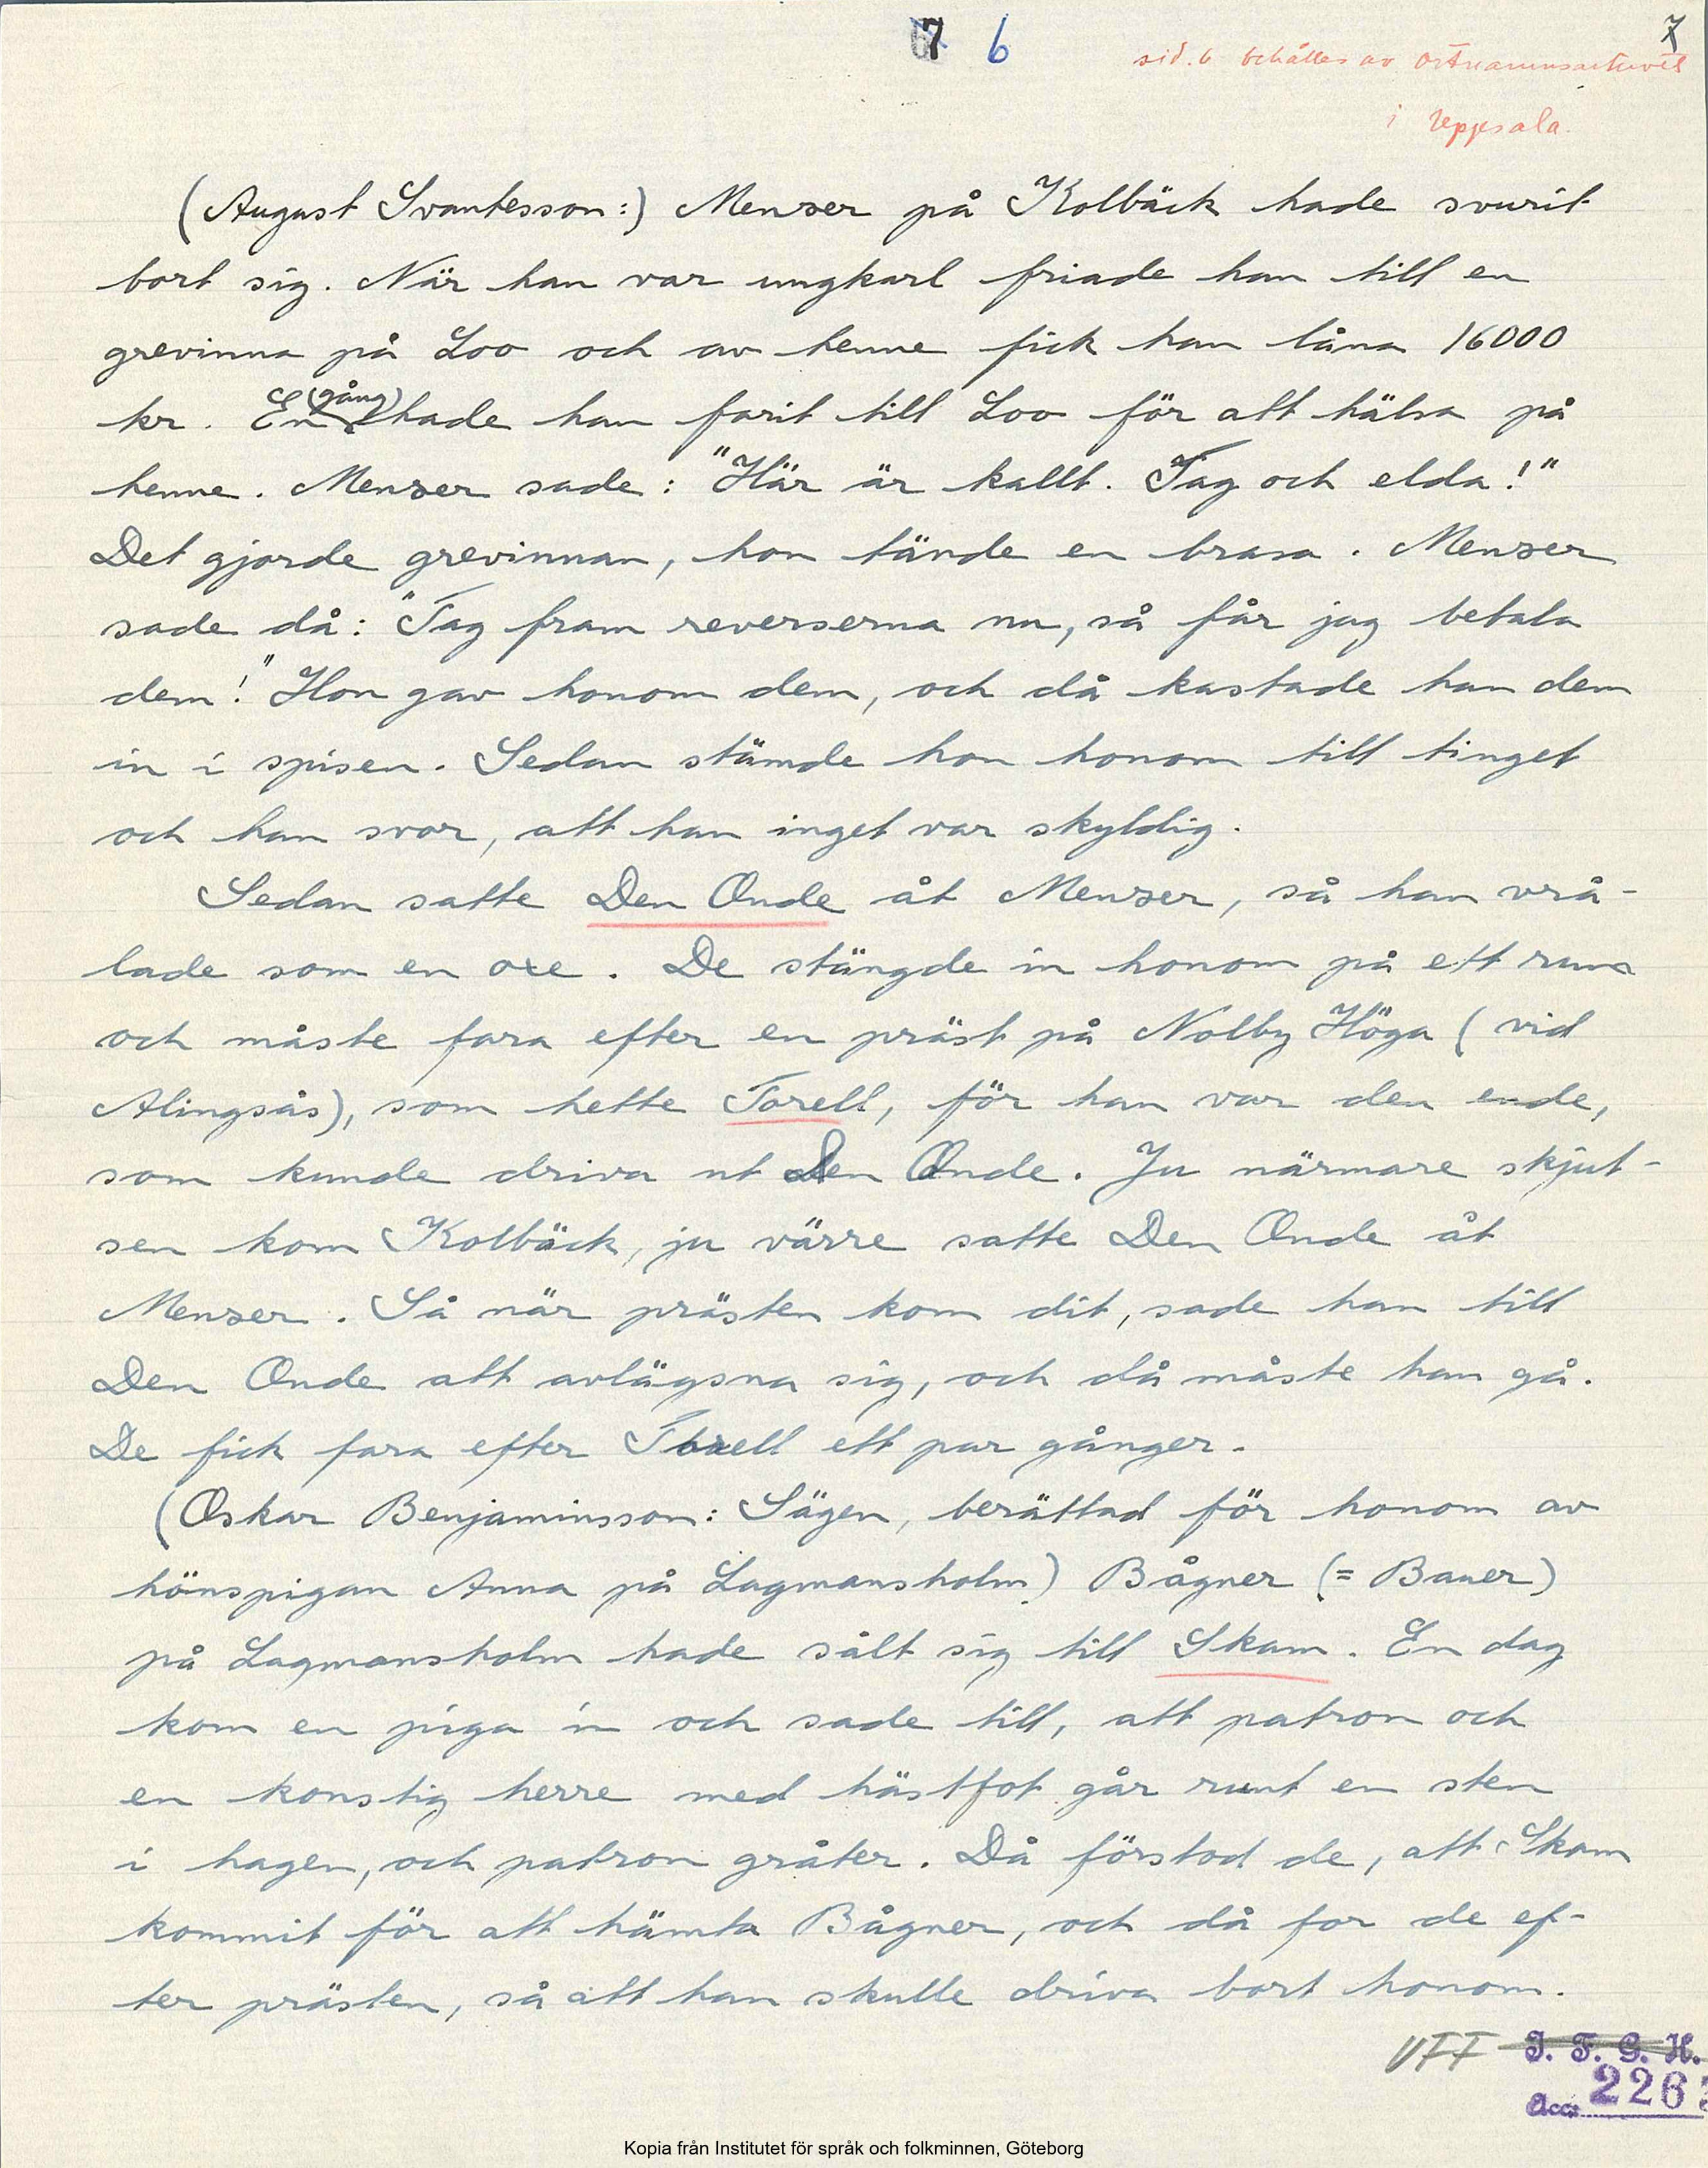 7 6
7
sid. 6 behålles av Ortnamnsarkivet
i Uppsala.
(August Svantesson:) Menzer på Kolbäck hade svurit
bort sig. När han var ungkarl friade han till en
grevinna på Loo och av henne fick han låna 16000
kr. En (gång) hade han farit till Loo för att hälsa på
henne. Menzer sade: "Här är kallt. Tag och elda!"
Det gjorde grevinnan, hon tände en brasa. Menzer
sade då: "Tag fram reverserna nu, så får jag betala
dem!" Hon gav honom dem, och då kastade han dem
in i spisen. Sedan stämde hon honom till tinget
och han svor, att han inget var skyldig.
Sedan satte Den Onde åt Menzer, så han vrå-
lade som en oxe. De stängde in honom på ett rum
och måste fara efter en präst på Nolby Höga (vid
Alingsås), som hette Torell, för han var den ende,
som kunde driva ut Den Onde. Ju närmare skjut-
sen kom Kolbäck, ju värre satte Den Onde åt
Menzer. Så när prästen kom dit, sade han till
Den Onde att avlägsna sig, och då måste han gå.
De fick fara efter Torell ett par gånger.
(Oskar Benjaminsson: Sägen, berättad för honom av
hönspigan Anna på Lagmansholm) Bågner (= Bauer)
på Lagmansholm hade sålt sig till Skam. En dag
kom en piga in och sade till, att patron och
en konstig herre med hästfot går runt en sten
i hagen, och patron gråter. Då förstod de, att Skam
kommit för att hämta Bågner, och då for de ef-
ter prästen, så att han skulle driva bort honom.
VFF I. F. G. H.
Acc. 226
Kopia från Institutet för språk och folkminnen, Göteborg